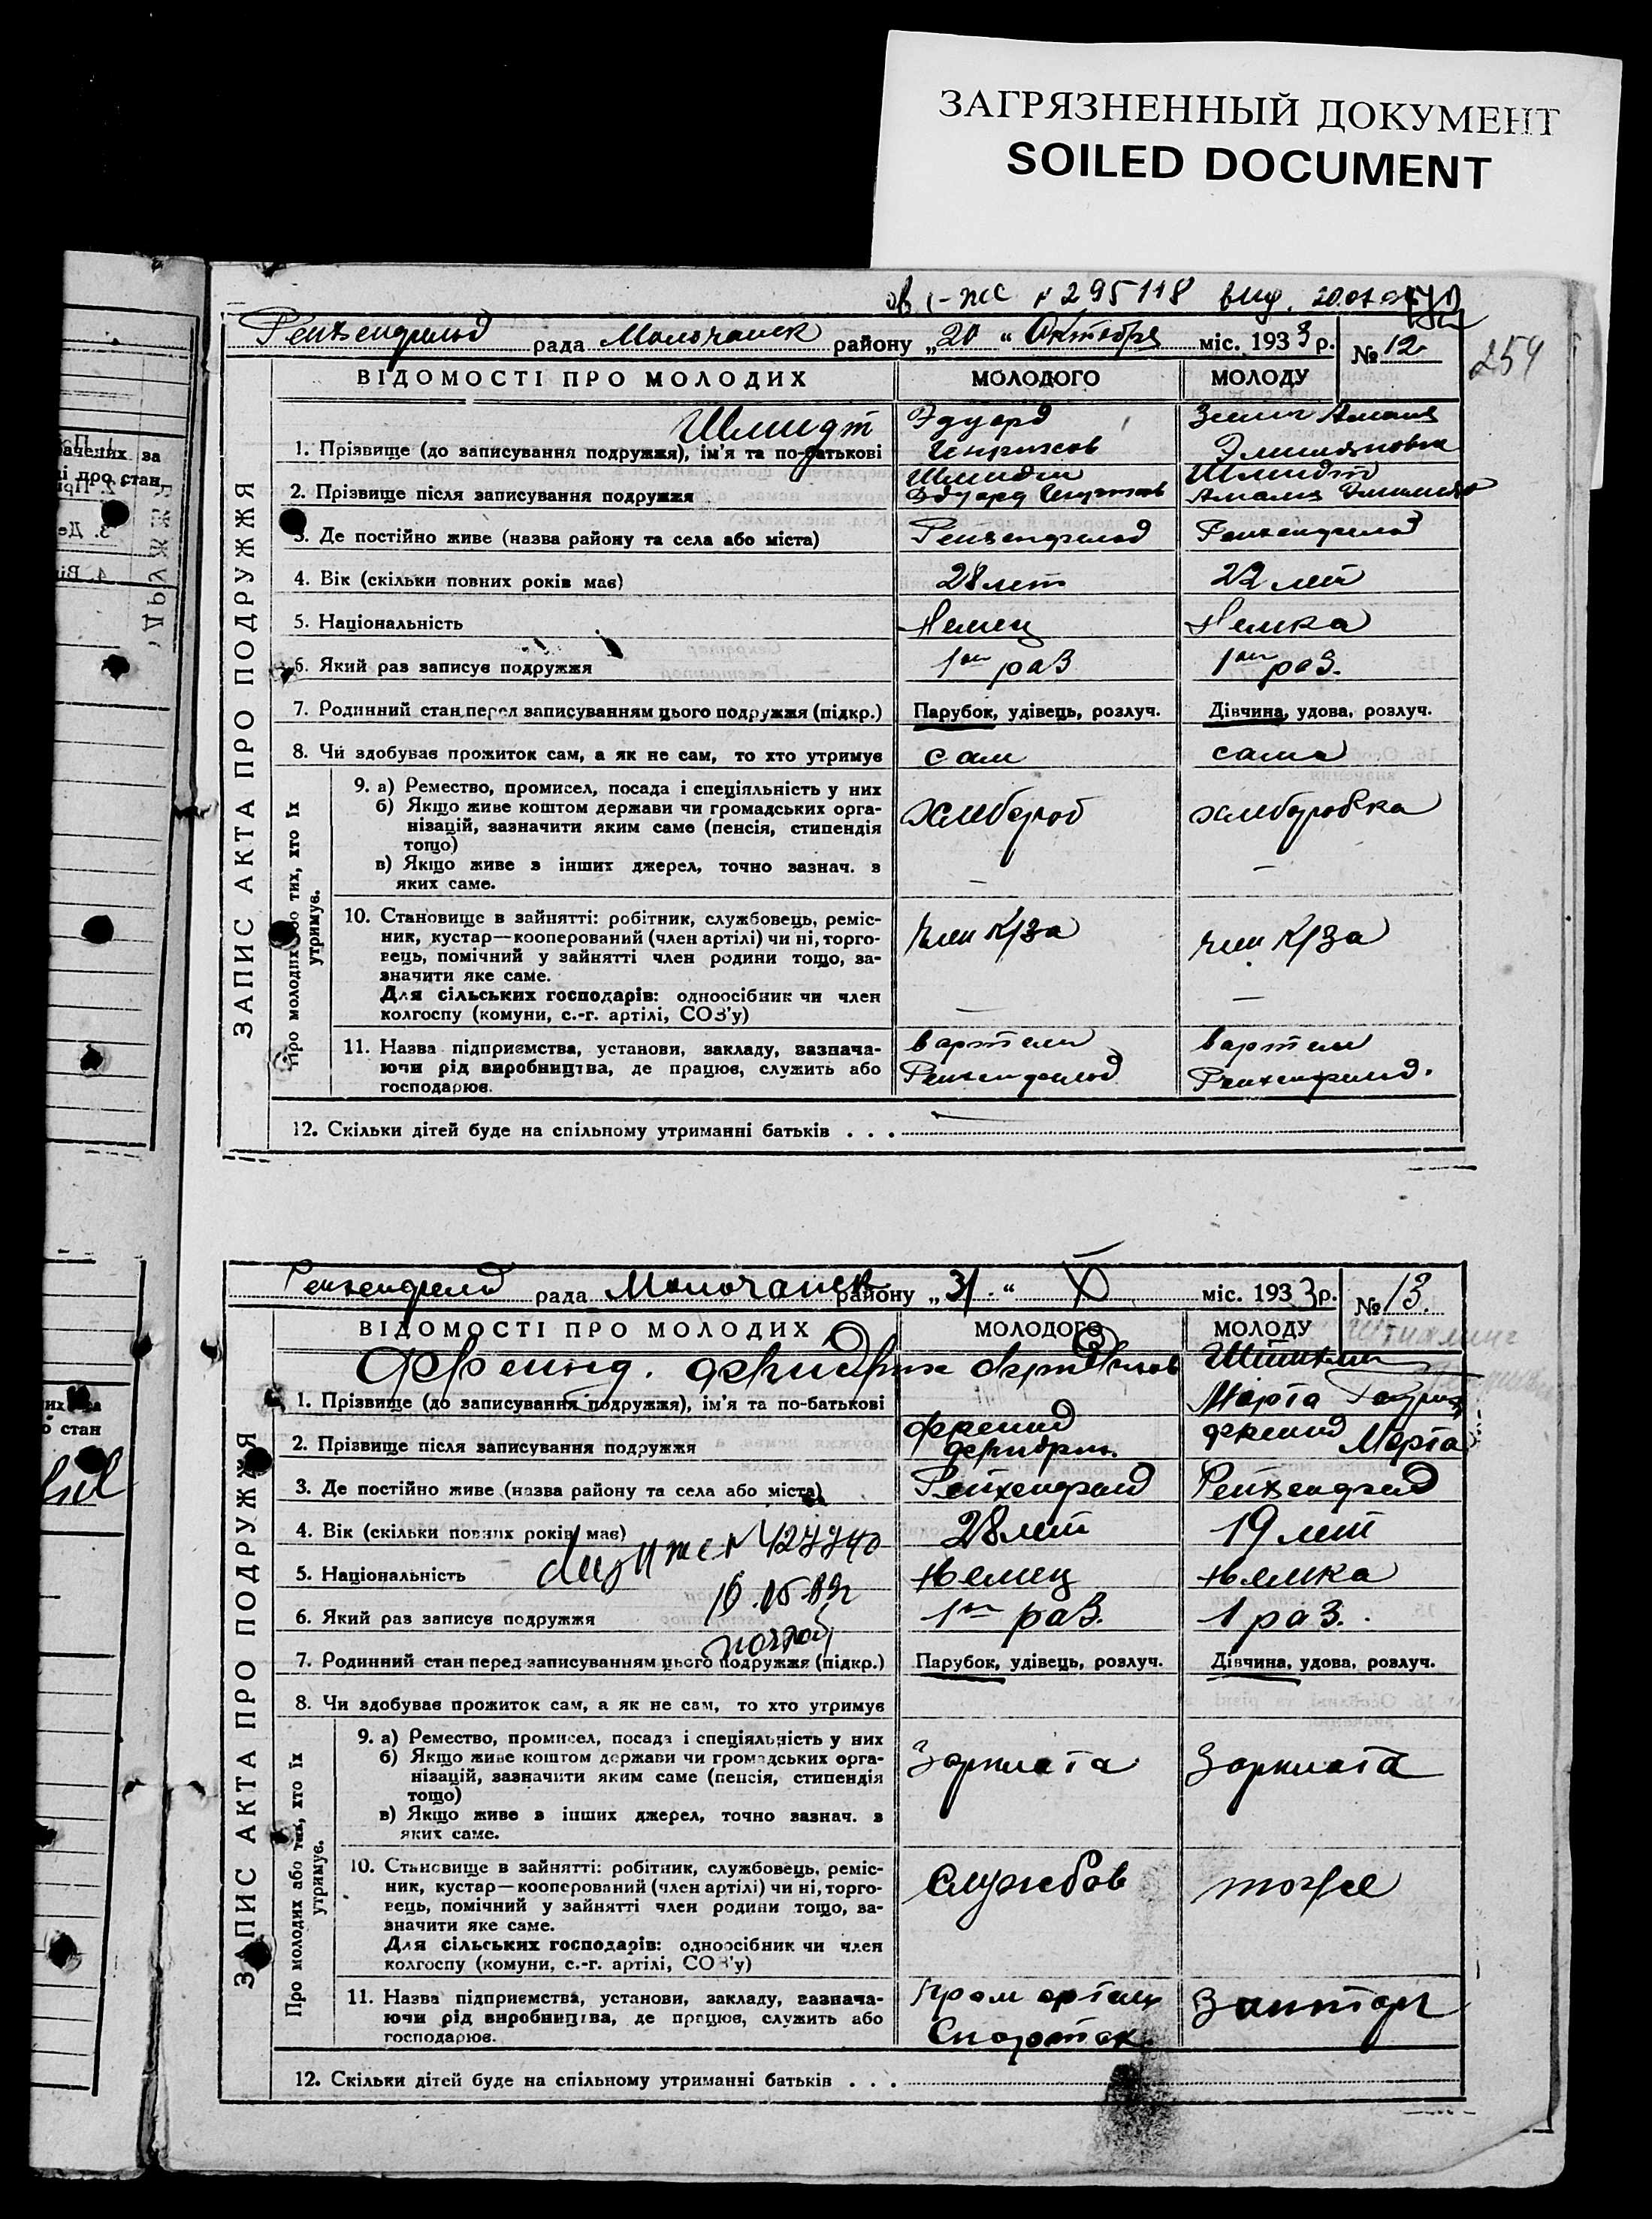 ЗАГРЯЗНЕННЫЙ ДОКУМЕНТ
SOILED DOCUMENT
№ 295118
254
рада Молочанск району „20“ Октября міс. 1933 р. № 12
ВІДОМОСТІ ПРО МОЛОДИХ МОЛОДОГО МОЛОДУ
ЗАПИС АКТА ПРО ПОДРУЖЖЯ
Шмидт Эдуард
1. Прізвище (до записування подружжя), ім'я та по-батькові
2. Прізвище після записування подружжя
Шмидт Эдуард
Шмидт Амалия
3. Де постійно живе (назва району та села або міста) Рейхенфельд Рейхенфельд
4. Вік (скільки повних років має) 28 лет 22 лет
5. Національність Немец Немка
6. Який раз записує подружжя 1ый раз 1ый раз.
7. Родинний стан перед записуванням цього подружжя (підкр.) Парубок, удівець, розлуч. Дівчина, удова, розлуч.
8. Чи здобуває прожиток сам, а як не сам, то хто утримує сам сама
Про молодих або тих, хто їх утримує.
9. а) Ремество, промисел, посада і спеціяльність у них
б) Якщо живе коштом держави чи громадських орга-
нізацій, зазначити яким саме (пенсія, стипендія
тощо)
в) Якщо живе з інших джерел, точно зазнач. з
яких саме.
хлебороб хлеборобка
10. Становище в зайнятті: робітник, службовець, реміс-
ник, кустар—кооперований (член артілі) чи ні, торго-
вець, помічний у зайнятті член родини тощо, за-
значити яке саме.
Для сільських господарів: одноосібник чи член
колгоспу (комуни, с.-г. артілі, СОЗ'у)
член к/за член к/за
11. Назва підприємства, установи, закладу, зазнача-
ючи рід виробництва, де працює, служить або
господарює.
в артели Рейхенфельд
в артели Рейхенфельд.
12. Скільки дітей буде на спільному утриманні батьків . . .
Рейхенфельд рада Молочанск району „31.“ X міс. 1933 р. № 13.
ВІДОМОСТІ ПРО МОЛОДИХ МОЛОДОГО МОЛОДУ
ЗАПИС АКТА ПРО ПОДРУЖЖЯ
Фридрих
Марта
1. Прізвище (до записування подружжя), ім'я та по-батькові
2. Прізвище після записування подружжя
Фридрих.
Марта
3. Де постійно живе (назва району та села або міста) Рейхенфельд Рейхенфельд
4. Вік (скільки повних років має) 28 лет 19 лет
5. Національність Немец Немка
6. Який раз записує подружжя 1ый раз. 1 раз.
7. Родинний стан перед записуванням цього подружжя (підкр.) Парубок, удівець, розлуч. Дівчина, удова, розлуч.
8. Чи здобуває прожиток сам, а як не сам, то хто утримує
Про молодих або тих, хто їх утримує.
9. а) Ремество, промисел, посада і спеціяльність у них
б) Якщо живе коштом держави чи громадських орга-
нізацій, зазначити яким саме (пенсія, стипендія
тощо)
в) Якщо живе з інших джерел, точно зазнач. з
яких саме.
Зарплата Зарплата
10. Становище в зайнятті: робітник, службовець, реміс-
ник, кустар—кооперований (член артілі) чи ні, торго-
вець, помічний у зайнятті член родини тощо, за-
значити яке саме.
Для сільських господарів: одноосібник чи член
колгоспу (комуни, с.-г. артілі, СОЗ'у)
службов тоже
11. Назва підприємства, установи, закладу, зазнача-
ючи рід виробництва, де працює, служить або
господарює.
Пром артель
Спартак.
12. Скільки дітей буде на спільному утриманні батьків . . .